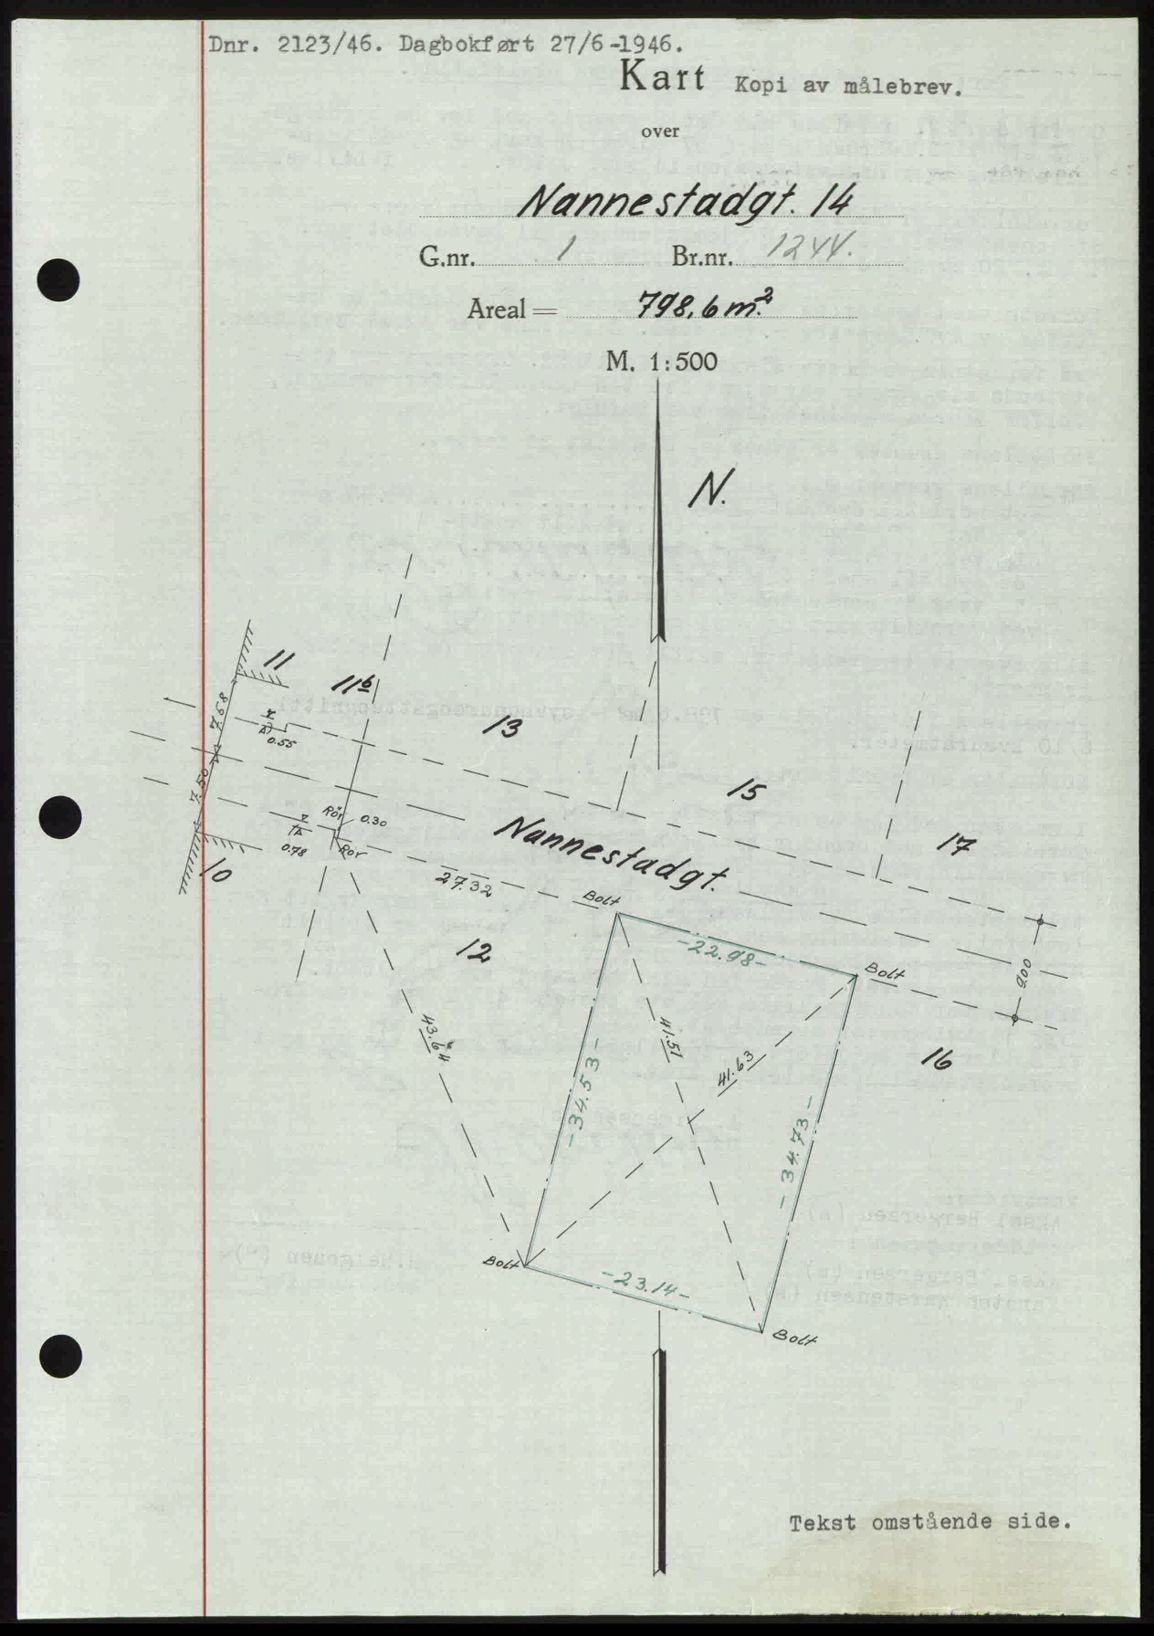 Dnr. 2123/46. Dagbokført 27/6-1946.
Kart Kopi av målebrev.
over
Nannestadgt. 14
G.nr. 1 Br.nr. 1244.
Areal = 798,6 m².
M. 1:500
N.
11
11b
13
7.58
0.55
15
7.50
Rör 0.30
17
0.78
Rör
Nannestadgt.
10
27.32
Bolt
12
-22.98-
Bolt
9.00
43.64
41.51
41.63
16
-34.53-
-34.73-
Bolt
-23.14-
Bolt
Tekst omstående side.